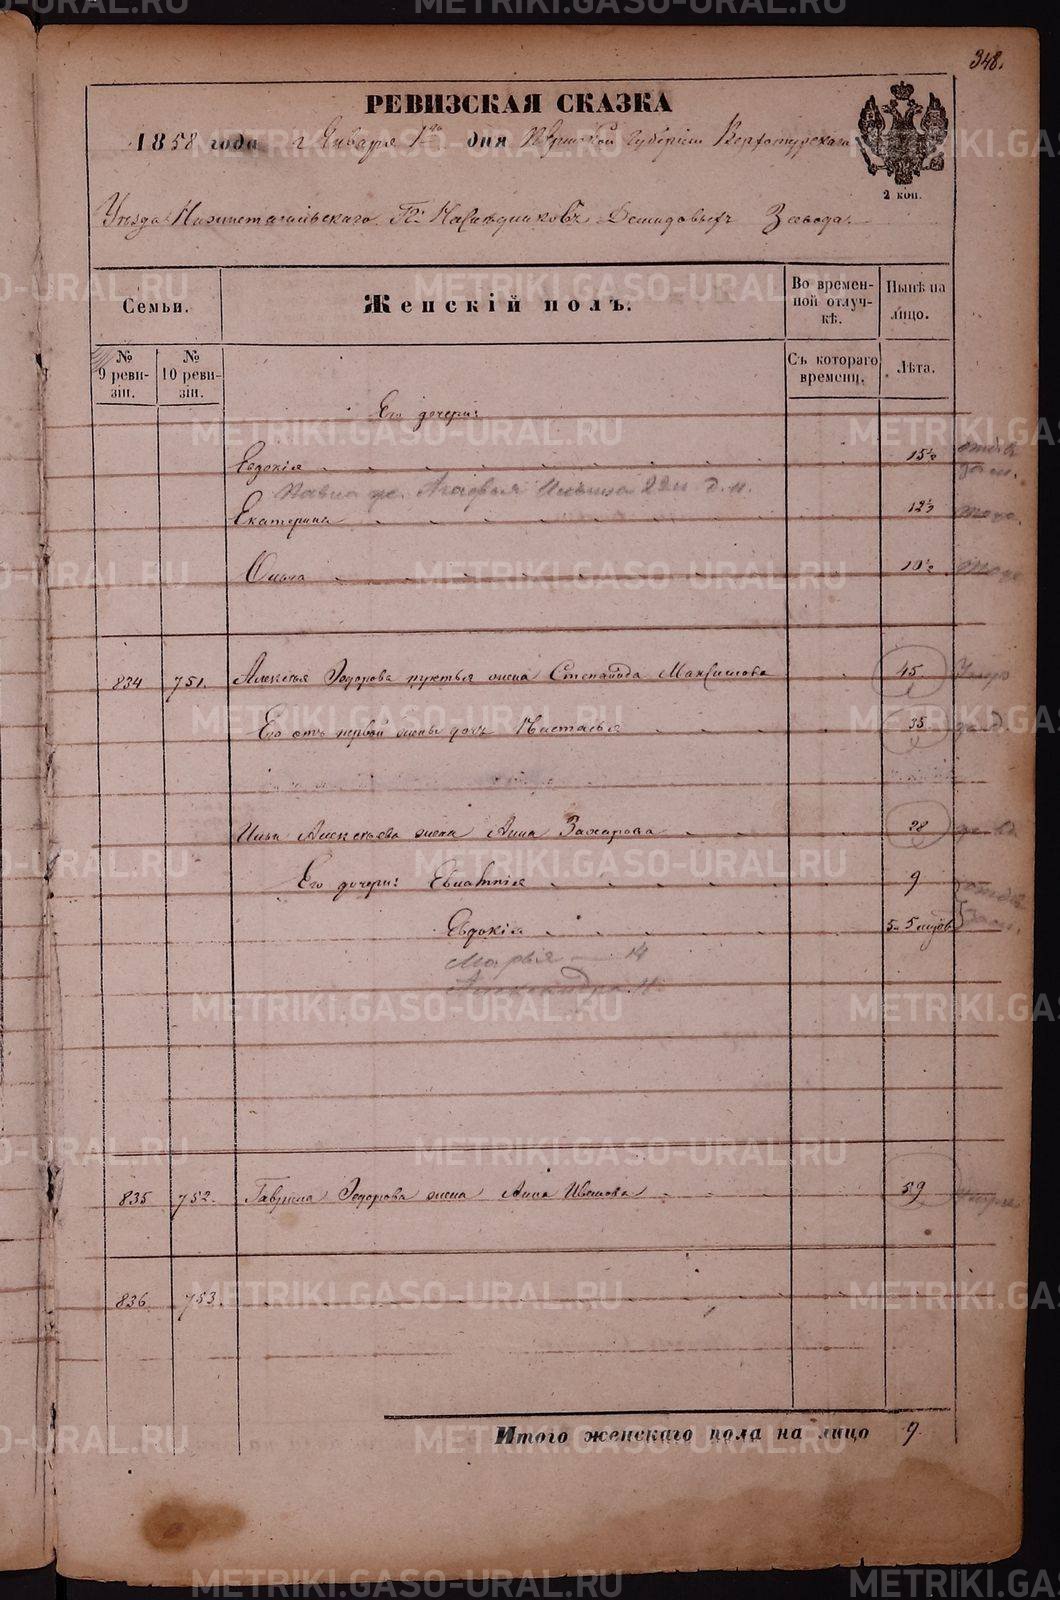 348.
РЕВИЗСКАЯ СКАЗКА
1858 года Января 1го дня Пермской Губерніи Верхотурскаго
2 коп.
Уѣзда Нижнетагильскаго Гг. Наслѣдниковъ Демидовыхъ Завода.
Семьи.
Женскій полъ.
Во времен-
ной отлуч-
кѣ.
Нынѣ на
лицо.
№
9 реви-
зіи.
№
10 реви-
зіи.
Съ котораго
времени.
Лѣта.
Его дочери:
Евдокія 15½
Агафья 22
Екатерина 12½
Ольга 10½
834 751. Алексѣя Федорова жена Степанида Максимова 45
Его отъ первой жены дочь Настасья 35
Ильи Алексѣева жена Анна Захарова 28
Его дочери: 9
Евдокія 5
Марья 14
Александра 11
835 752. Гаврила Федорова жена Анна Иванова 59
836 753.
Итого женскаго пола на лицо 9
METRIKI.GASO-URAL.RU